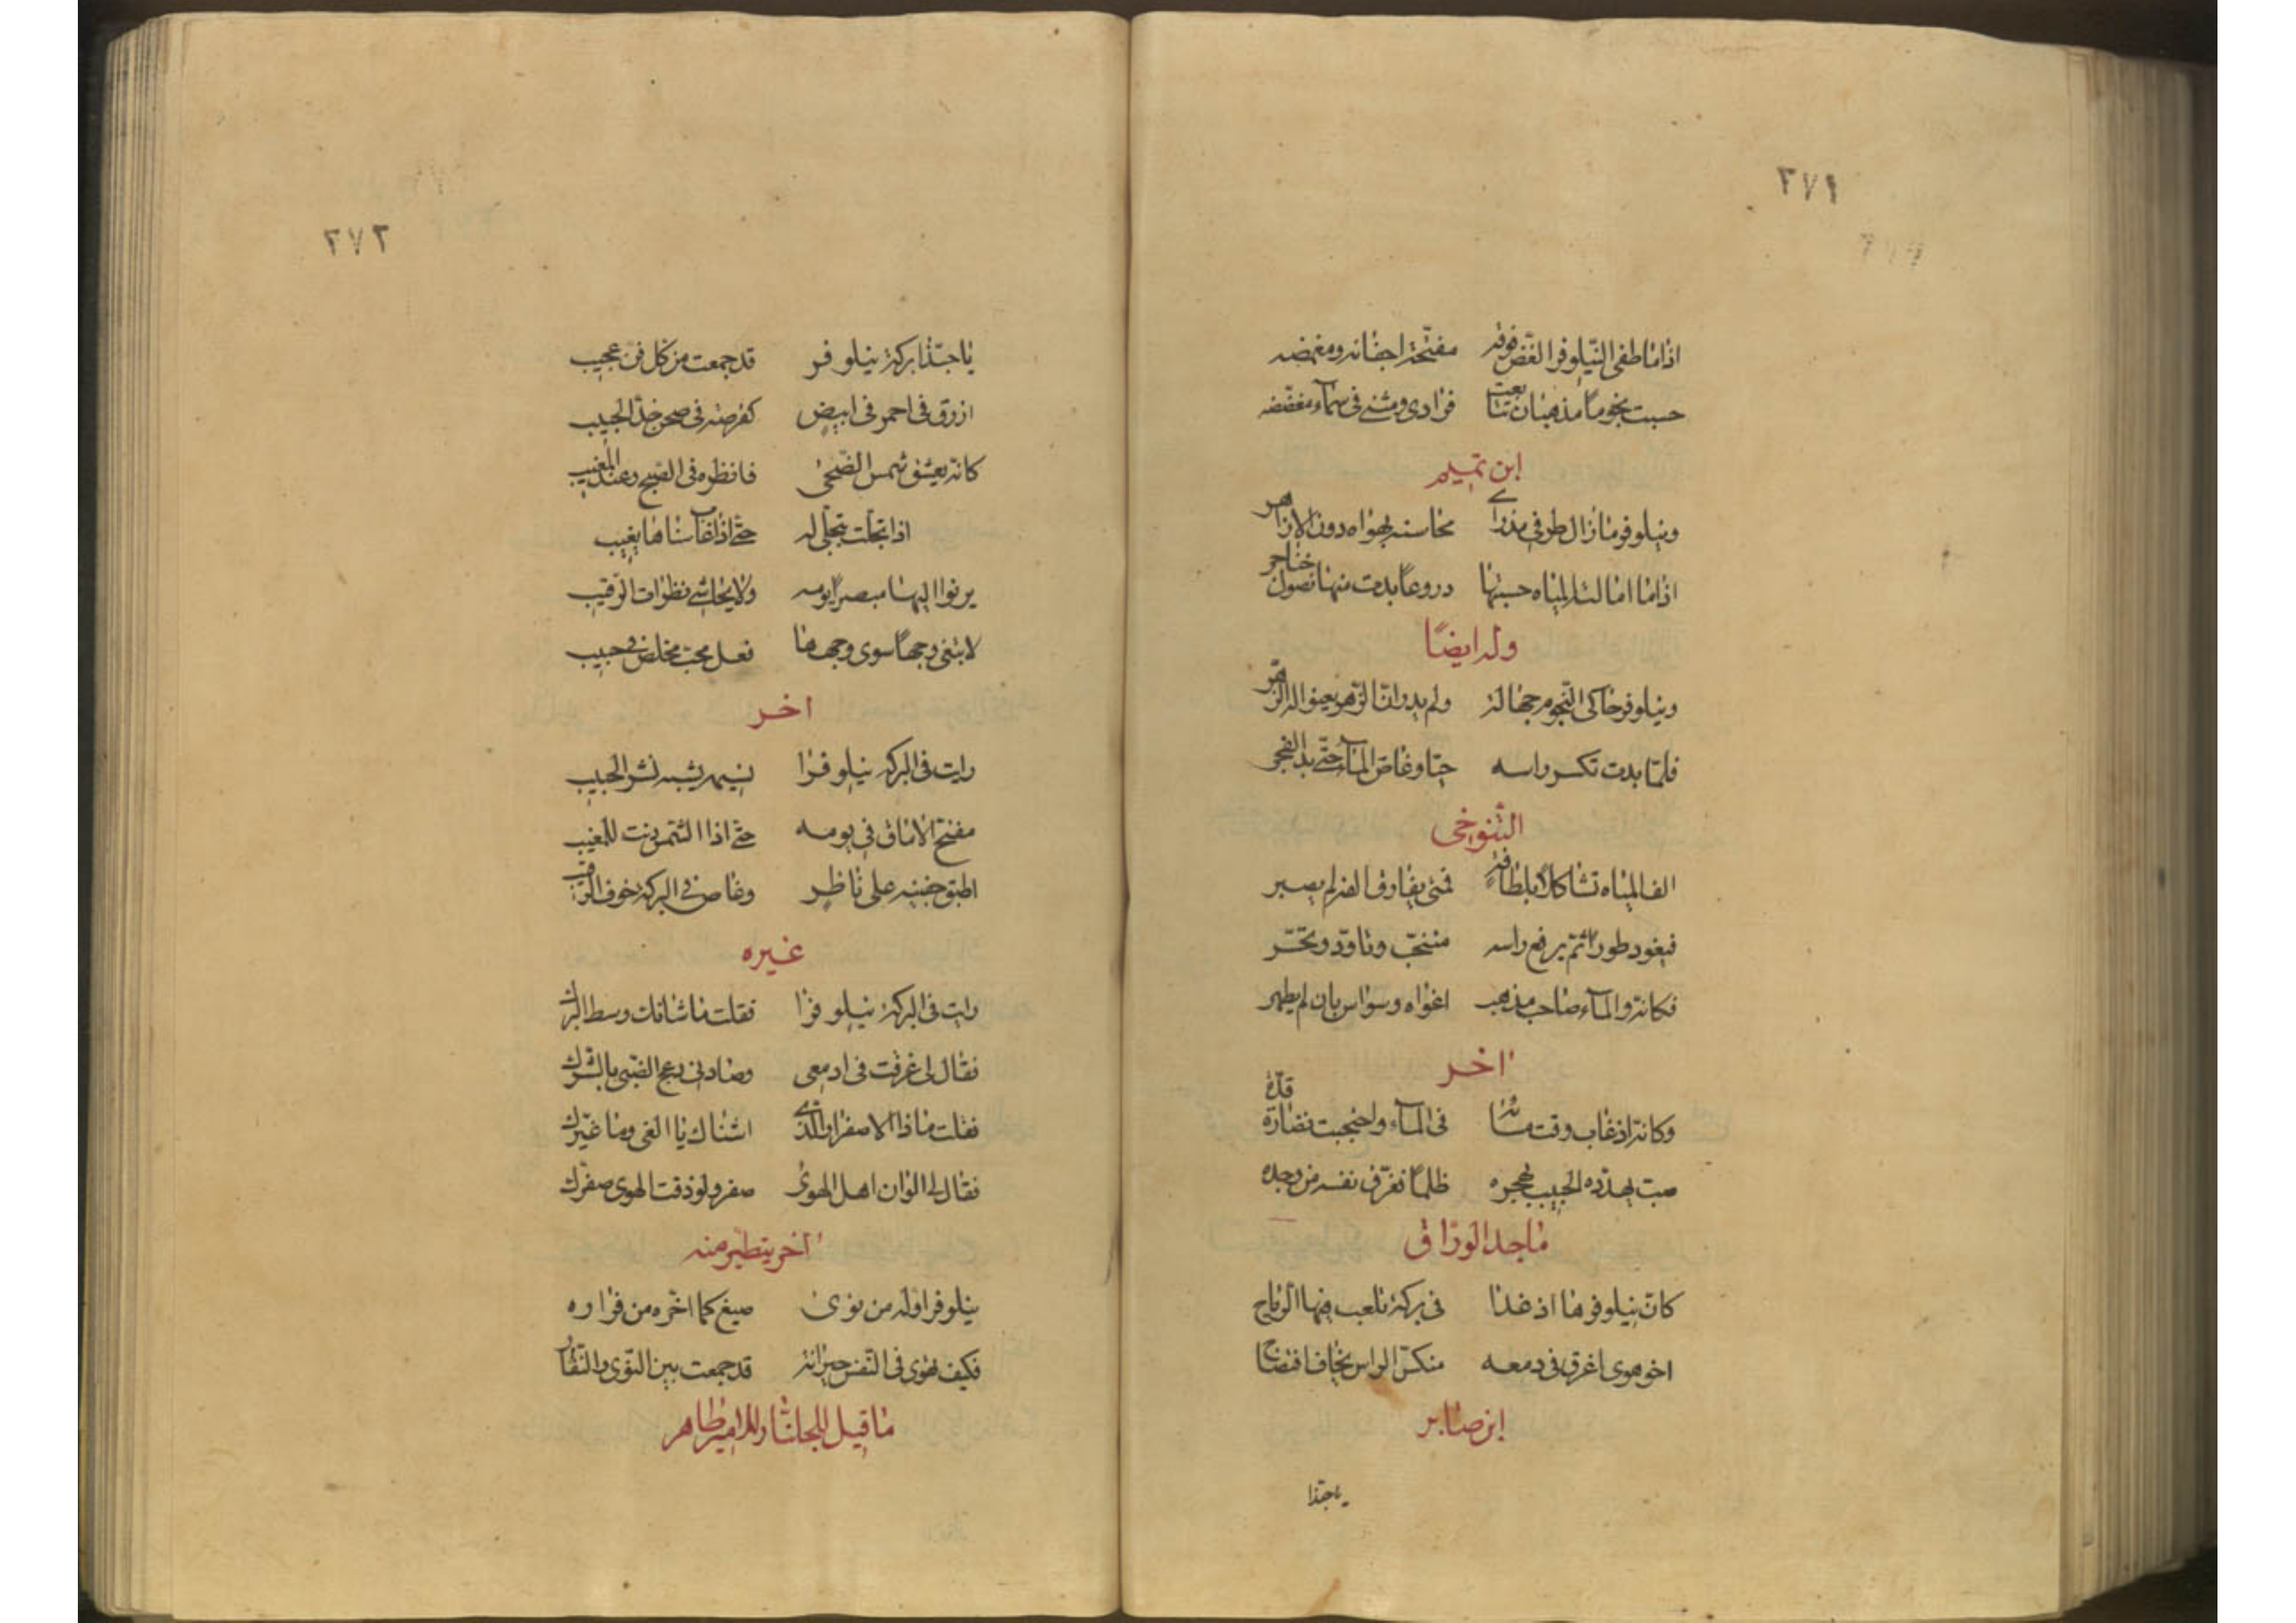 ٢٧١
اذا ما طفى النيلوفر الغض فوقه مفتحة اجفانه ومغمضه
حسبت نجوما مذهبات تتابعت فرادى ومثنى في سماء مفضضه
ابن تميم
ونيلوفر ما زال طرفي مذ راى محاسنه يهواه دون الازاهر
اذا ما امالته المياه حسبتها دروعا بدت منها نصول خناجر
وله ايضًا
ونيلوفر حاكى النجوم جهالة ولم يدر انّ الزهر يعنو له الزهر
فلمّا بدت نكس راسه حيا وغاص الماء حتّى بدا الفجر
التنوخي
الف المياه تشاكلا بلطافة فمتى يفارق الفه لم يصبر
فيغود طورا ثمّ يرفع راسه
فكانه والماء صاحب مذهب اغواه وسواس بان لم يطهر
اخر
وكانه اذ غاب وقت مسائه في الماء واحتجبت نضارة قدّه
صب يهدّده الحبيب بهجره ظلما فغرّق نفسه من وجده
ماجد الورّاق
كانّ نيلوفرها اذ غدا في بركة تلعب فيها الرياح
اخو هوى اغرق في دمعه منكّس الراس يخاف افتضاح
ابن صابر
يا حبّذا
٢٧٢
يا حبّذا بركة نيلوفر قد جمعت من كل فن عجيب
ازرق في احمر في ابيض كقرصة في صحن خدّ الحبيب
كانه يعشق شمس الضحى فانظره في الصبح وعند المغيب
اذا تجلت يتجلى له حتّى اذا غاب سناها يغيب
يرنوا اليها مبصرا يومه ولا يحاشي نظرات الرقيب
لا يبتغي وجها سوى وجهها فعل محب مخلص في حبيب
اخر
رايت في البركة نيلوفرا نسيمه يشبه نشر الحبيب
مفتح الاماق في يومه حتّى اذا الشمس دنت للمغيب
اطبق جفنيه على ناظر وغاص في البركة خوف الرقيب
غيره
رايت في البركة نيلوفرا فقلت ما شانك وسط البرك
فقال لي غرقت في ادمعي وصادني دعج الظبي بالشرك
فقلت ما ذا الاصفرار الذي اشناك يا الفي وما غيّرك
فقال لي الوان اهل الهوى صفر ولو ذقت الهوى صفّرك
اخر يتطير منه
نيلوفر اوله من نوى صيغ كما اخره من فرار
فكيف تهوى في النفس جيرانه قد جمعت بين النوى والنفار
ما قيل للجلنار للامير طاهر